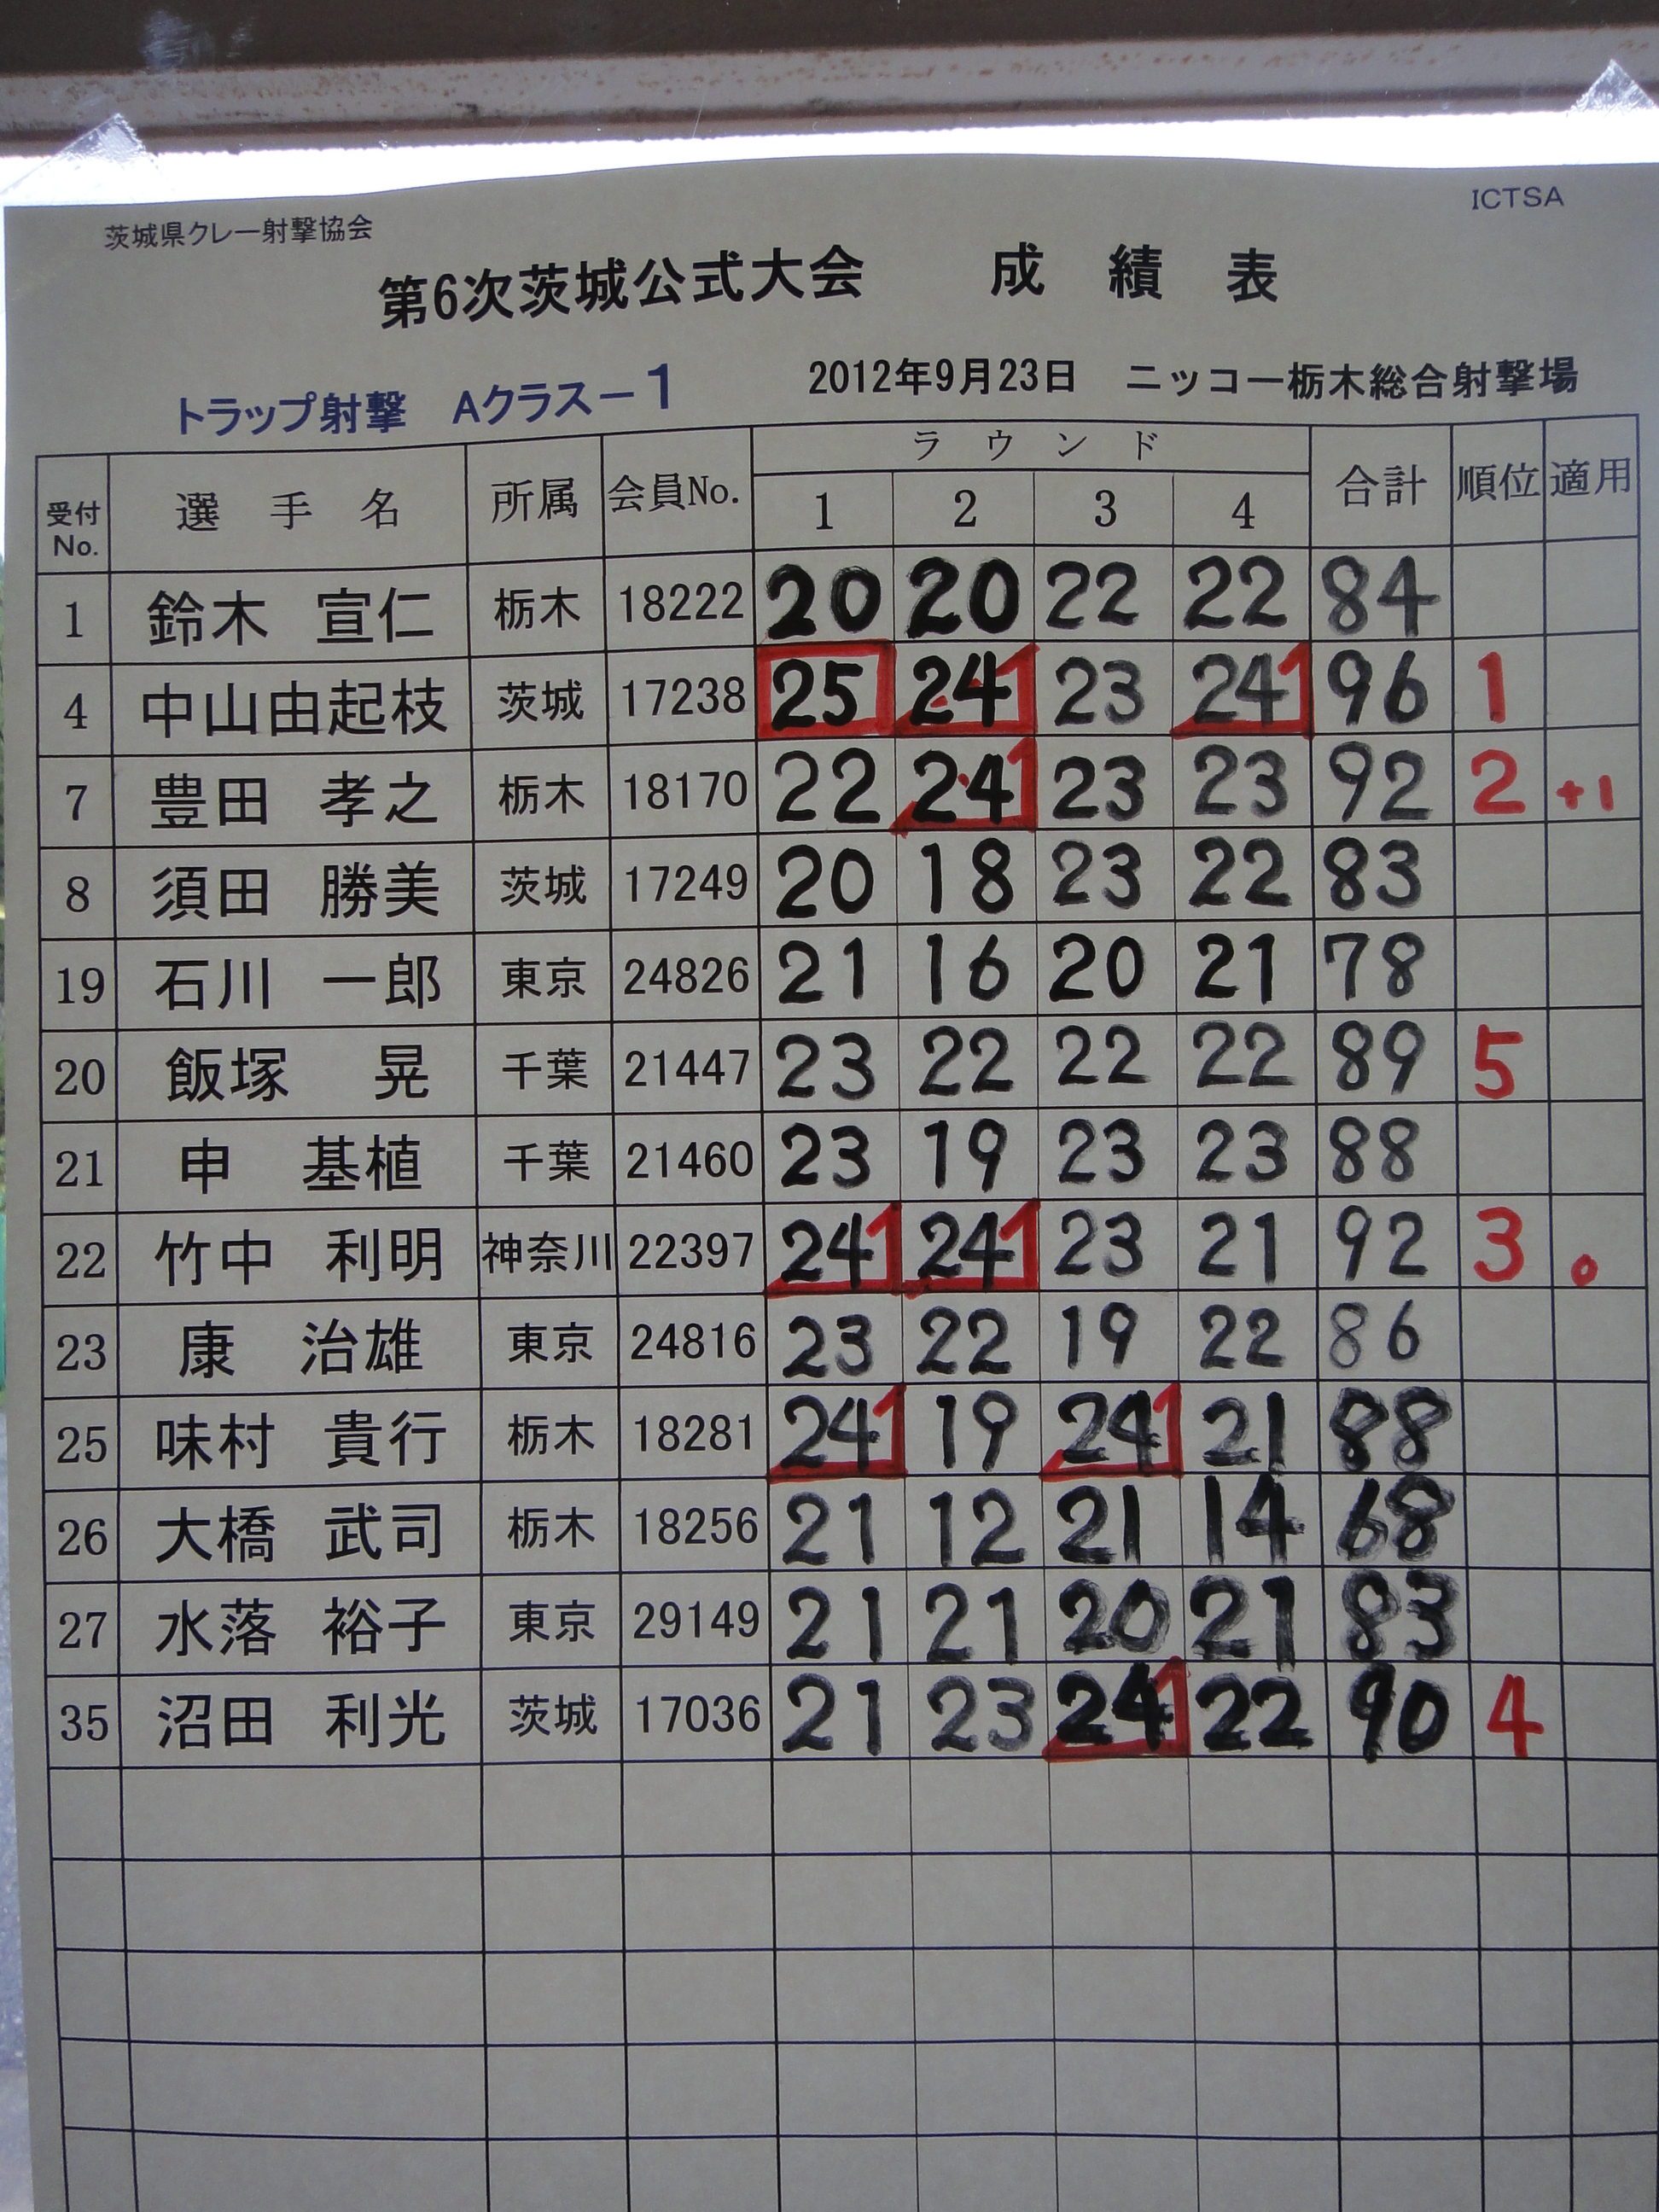 ICTSA
茨城県クレー射撃協会
第6次茨城公式大会 成績表
トラップ射撃 Aクラス－1 2012年9月23日 ニッコー栃木総合射撃場
受付No. 選手名 所属 会員No. ラウンド 1 2 3 4 合計 順位 適用
1 鈴木 宣仁 栃木 18222 20 20 22 22 84
4 中山由起枝 茨城 17238 25 24 1 23 24 1 96 1
7 豊田 孝之 栃木 18170 22 24 1 23 23 92 2 +1
8 須田 勝美 茨城 17249 20 18 23 22 83
19 石川 一郎 東京 24826 21 16 20 21 78
20 飯塚 晃 千葉 21447 23 22 22 22 89 5
21 申 基植 千葉 21460 23 19 23 23 88
22 竹中 利明 神奈川 22397 24 1 24 1 23 21 92 3 0
23 康 治雄 東京 24816 23 22 19 22 86
25 味村 貴行 栃木 18281 24 1 19 24 1 21 88
26 大橋 武司 栃木 18256 21 12 21 14 68
27 水落 裕子 東京 29149 21 21 20 21 83
35 沼田 利光 茨城 17036 21 23 24 1 22 90 4